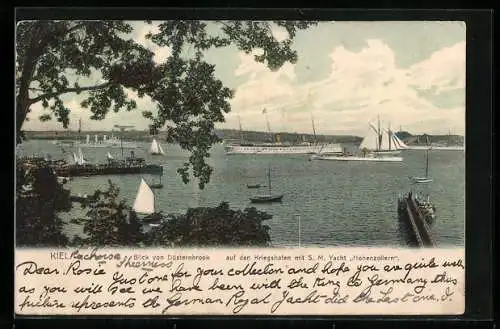 KIEL Blick von Düsternbrook auf den Kriegshafen mit S. M. Yacht „Hohenzollern".
Dear Rosie Just one for your collection and hope you are quite well
as you will see we have been with the King to Germany this
picture represents the German Royal Yacht did the last one I